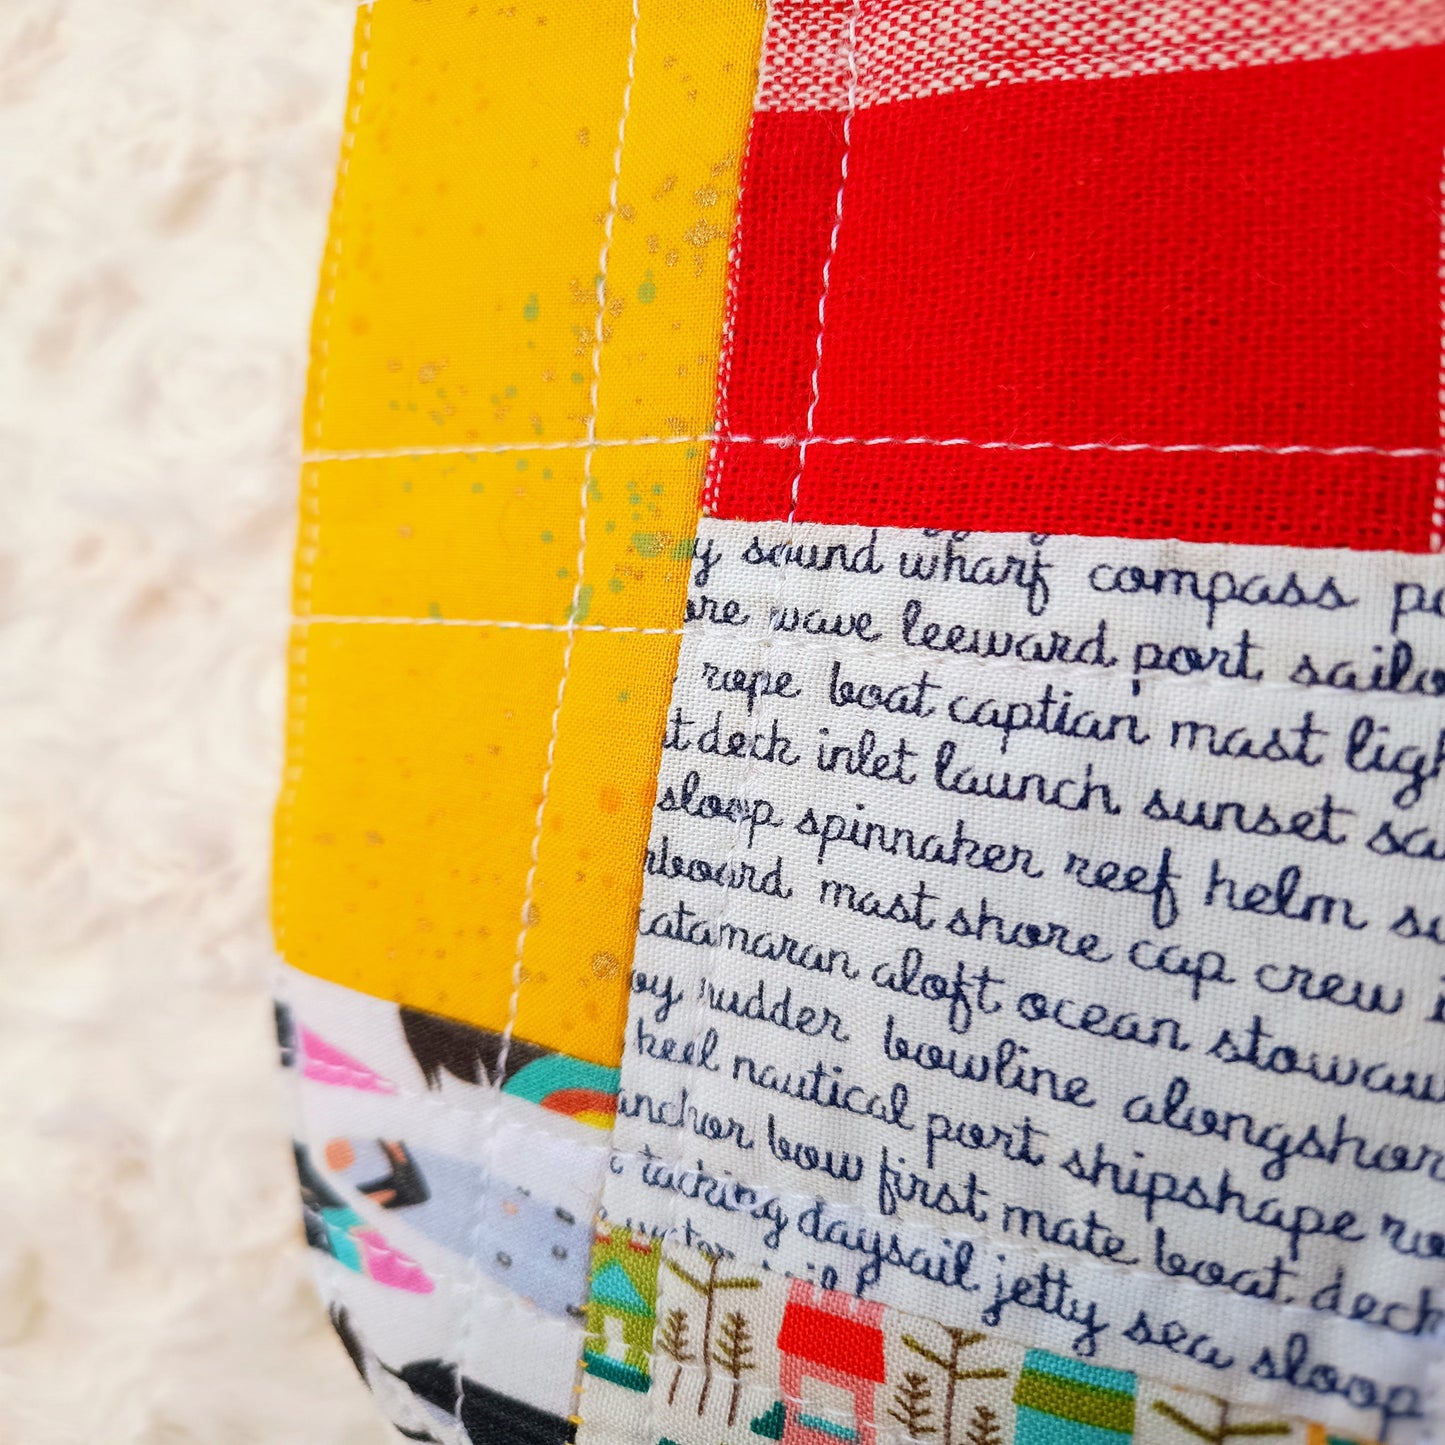 y sound wharf compass
wave leeward port
rope boat captian mast
deck inlet launch sunset
sloop spinnaker reef helm
rboard mast shore cap crew
catamaran aloft ocean stowaw
rudder bowline alongshor
keel nautical port shipshape
anchor bow first mate boat deck
tacking daysail jetty sea sloop